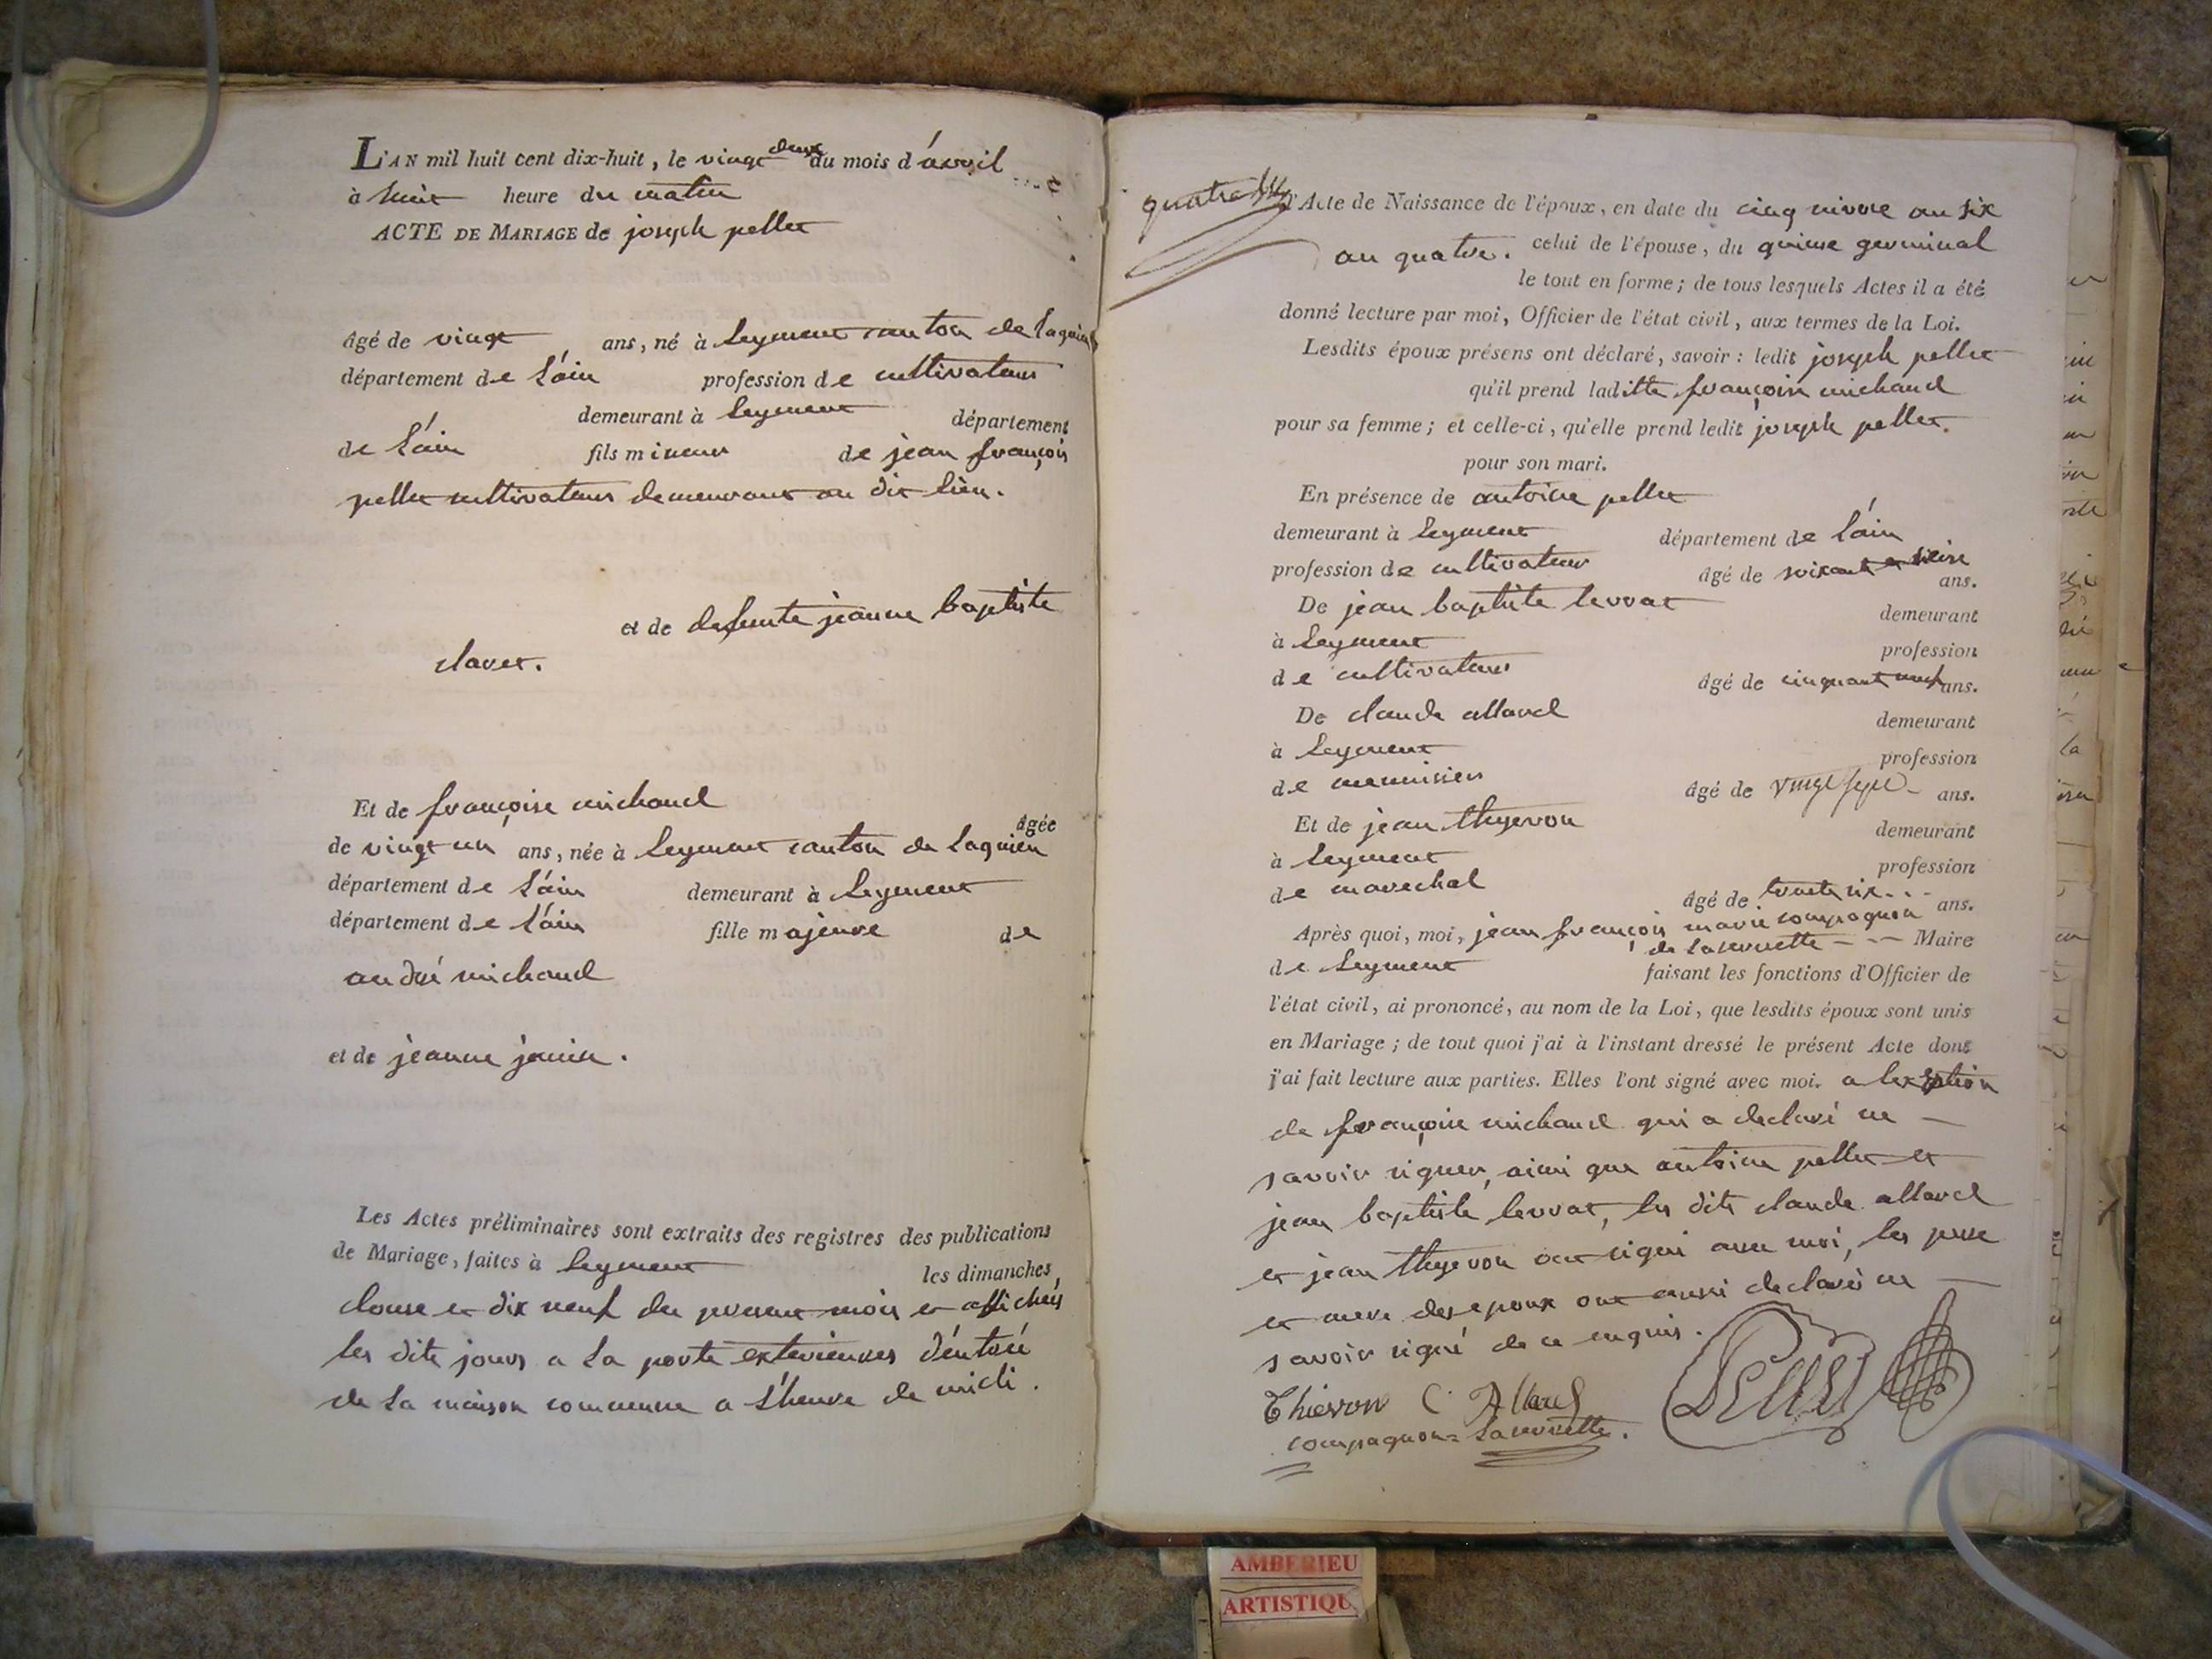 L'AN mil huit cent dix-huit, le vingt deux du mois d'avril
à huit heure du matin
ACTE DE MARIAGE de joseph pellet
âgé de vingt ans, né à leyment canton de lagnieu
département de l'ain profession de cultivateur
demeurant à leyment département
de l'ain fils mineur de jean françois
pellet cultivateur demeurant au dit lieu.
et de defunte jeanne baptiste
claret.
Et de françoise michaud
âgée
de vingt un ans, née à leyment canton de lagnieu
département de l'ain demeurant à leyment
département de l'ain fille majeure de
andré michaud
et de jeanne janin.
Les Actes préliminaires sont extraits des registres des publications
de Mariage, faites à leyment les dimanches
douse et dix neuf du present mois et affichés
les dits jours a la porte exterieures d'éntrée
de la maison commune a l'heure de midi.
quatre
l'Acte de Naissance de l'époux, en date du cinq nivose an six
celui de l'épouse, du quinse germinal
an quatre.
le tout en forme; de tous lesquels Actes il a été
donné lecture par moi, Officier de l'état civil, aux termes de la Loi.
Lesdits époux présens ont déclaré, savoir: ledit joseph pellet
qu'il prend laditte françoise michaud
pour sa femme; et celle-ci, qu'elle prend ledit joseph pellet.
pour son mari.
En présence de antoine pellet
demeurant à leyment département de l'ain
profession de cultivateur âgé de soixante seise ans.
De jean baptiste levrat demeurant
à leyment profession
de cultivateur âgé de cinquant neuf ans.
De claude allard demeurant
à leyment profession
de menuisier âgé de vingt sept ans.
Et de jean thyevon demeurant
à leyment profession
de marechal âgé de trante six... ans.
Après quoi, moi, jean françois marie compagnon
de laservette - - - Maire
de leyment faisant les fonctions d'Officier de
l'état civil, ai prononcé, au nom de la Loi, que lesdits époux sont unis
en Mariage; de tout quoi j'ai à l'instant dressé le présent Acte dont
j'ai fait lecture aux parties. Elles l'ont signé avec moi. a lexeption
de françoise michaud qui a declaré ne -
savoir signer, ainsi que antoine pellet et
jean baptiste levrat, les dits claude allard
et jean thyevon ont signé avec moi, les pere
et mere des epoux ont aussi declaré ne -
savoir signé de ce enquis.
Thievon C Allard Pellet
compagnon= laservette.
AMBERIEU
ARTISTIQU